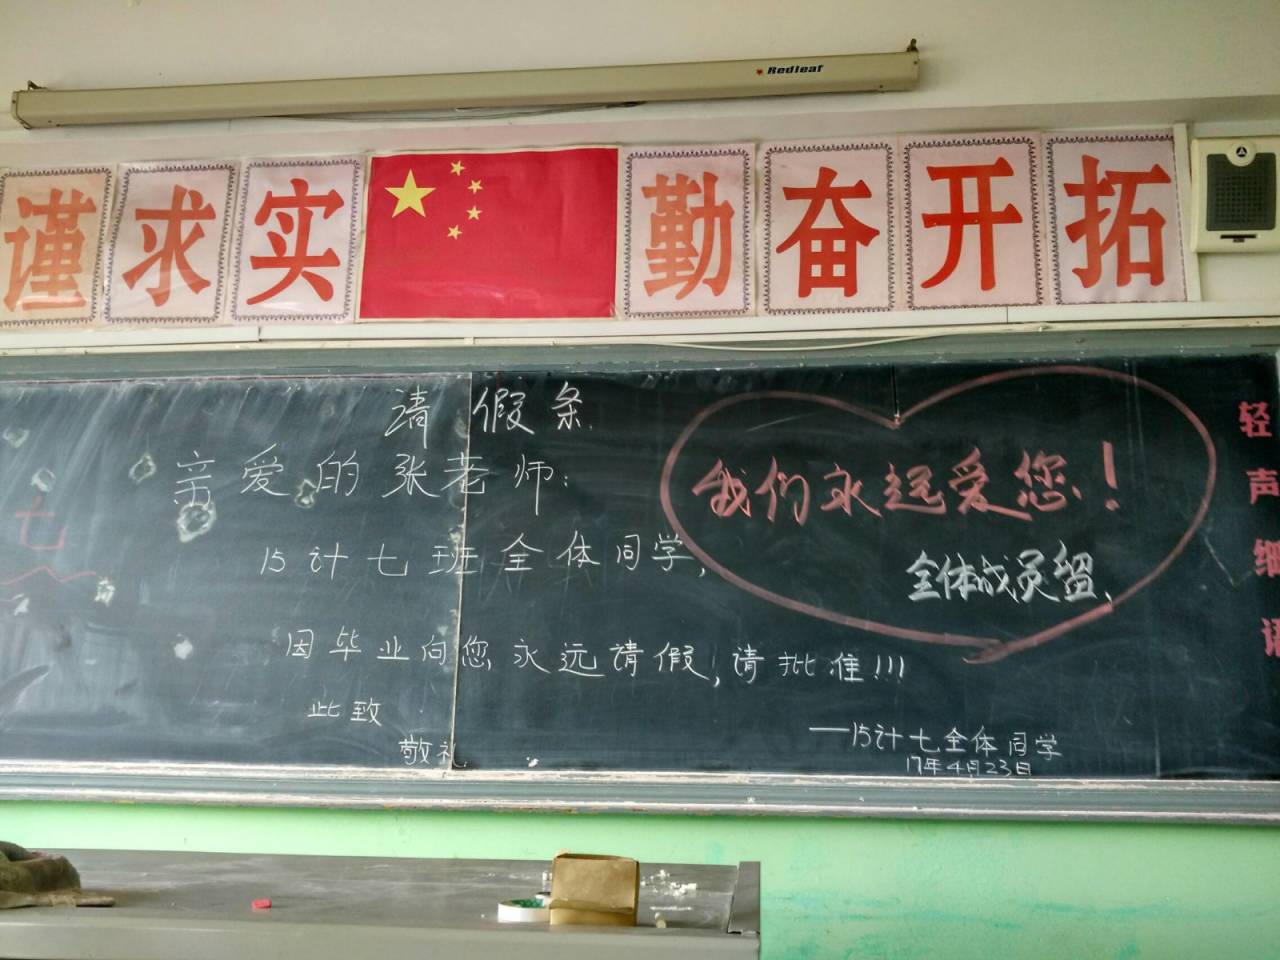 Redleaf
谨求实 勤奋开拓
请假条
亲爱的张老师:
15计七班全体同学,
因毕业向您永远请假,请批准!!!
此致
敬礼
——15计七全体同学
17年4月23日
我们永远爱您!
全体成员留
轻声细语
七